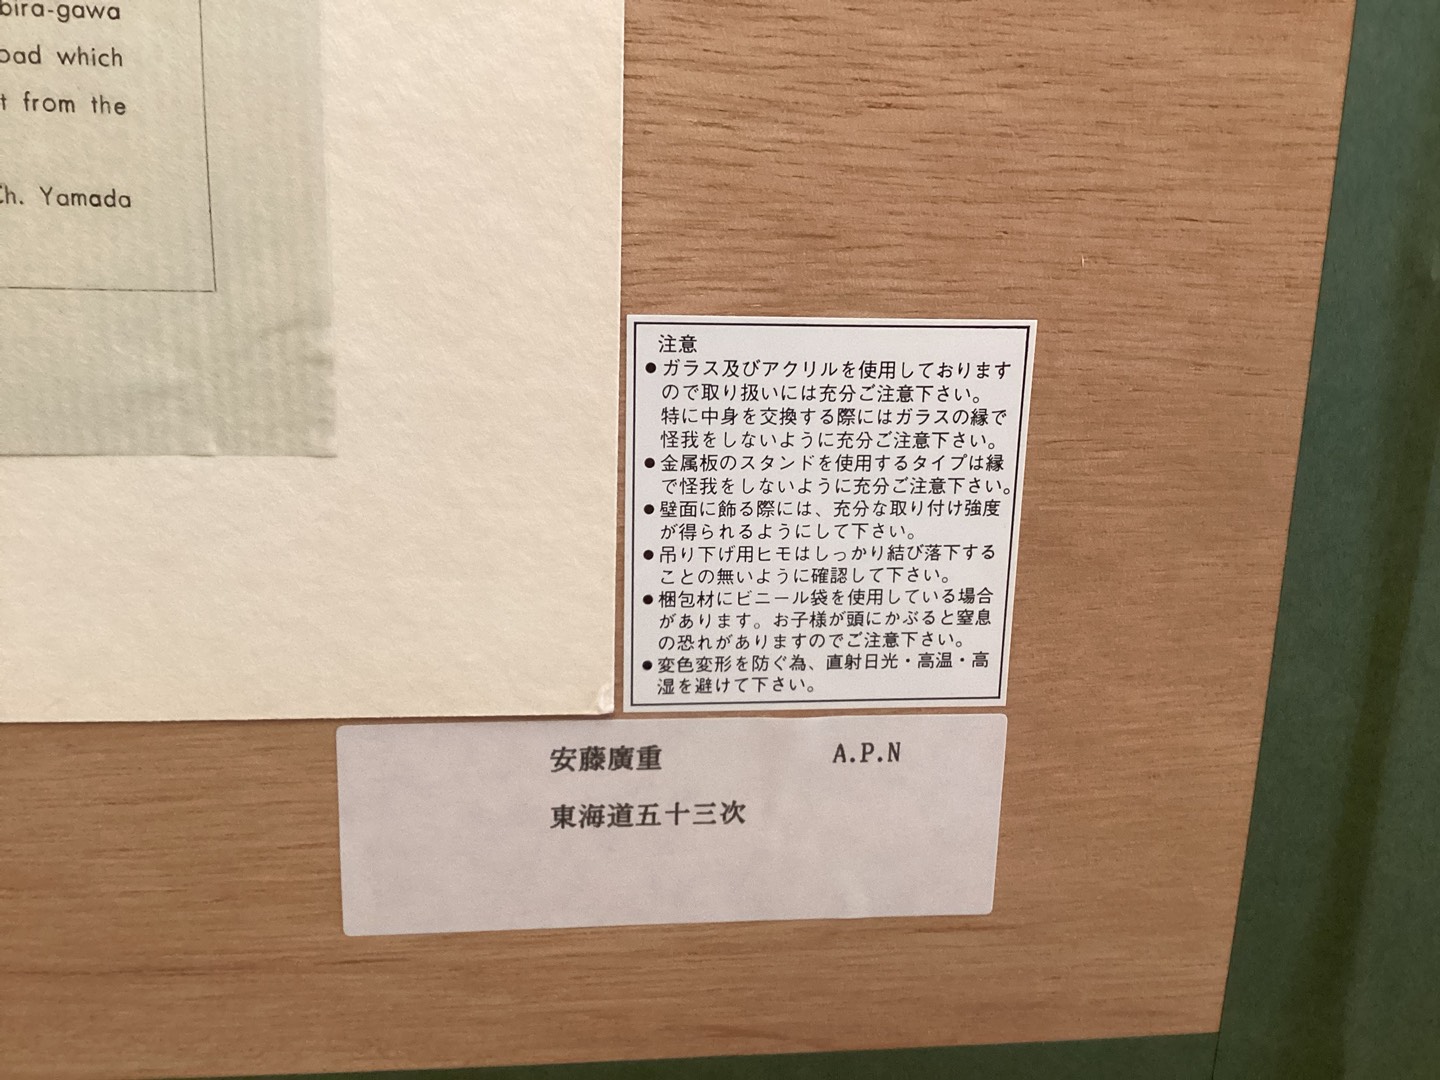 bira-gawa
oad which
t from the
Ch. Yamada
注意
●ガラス及びアクリルを使用しております
ので取り扱いには充分ご注意下さい。
特に中身を交換する際にはガラスの縁で
怪我をしないように充分ご注意下さい。
●金属板のスタンドを使用するタイプは縁
で怪我をしないように充分ご注意下さい。
●壁面に飾る際には、充分な取り付け強度
が得られるようにして下さい。
●吊り下げ用ヒモはしっかり結び落下する
ことの無いように確認して下さい。
●梱包材にビニール袋を使用している場合
があります。お子様が頭にかぶると窒息
の恐れがありますのでご注意下さい。
●変色変形を防ぐ為、直射日光・高温・高
湿を避けて下さい。
安藤廣重 A.P.N
東海道五十三次